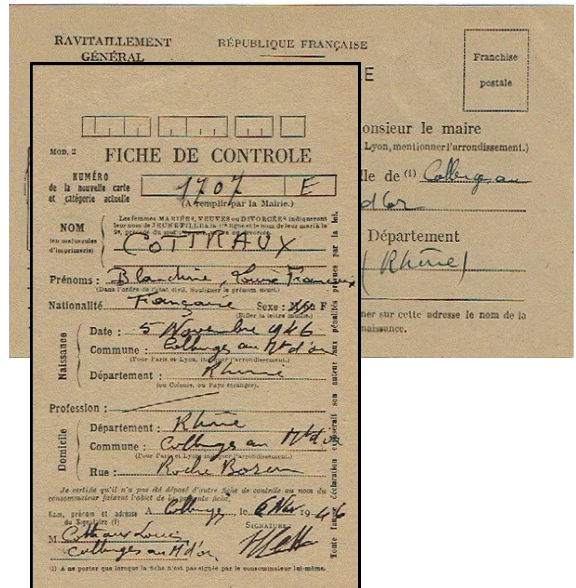 RAVITAILLEMENT
GÉNÉRAL
RÉPUBLIQUE FRANÇAISE
Franchise
postale
E
onsieur le maire
Lyon, mentionner l'arrondissement.)
lle de (1) Collonges au
d'or
Département
(Rhône)
ner sur cette adresse le nom de la
naissance.
MOD. 2
FICHE DE CONTROLE
NUMÉRO
de la nouvelle carte
et catégorie actuelle
1707 E
(A remplir par la Mairie.)
NOM
(en majuscules
d'imprimerie)
Les femmes MARIÉES, VEUVES ou DIVORCÉES indiqueront
leur nom de JEUNE FILLE à la 1re ligne et le nom de leur mari à la
2e, précédé du mot
COTTRAUX
Prénoms : Blandine Louise Françoise
(Dans l'ordre de l'état civil. Souligner le prénom usuel.)
Nationalité Française Sexe : F
(Rayer la lettre inutile.)
Naissance
Date : 5 Novembre 1946
Commune : Collonges au Mt d'or
(Pour Paris et Lyon, indiquer l'arrondissement.)
Département : Rhône
(ou Colonie, ou Pays étranger).
Profession :
Domicile
Département : Rhône
Commune : Collonges au Mt d'or
(Pour Paris et Lyon indiquer l'arrondissement.)
Rue : Roche
Je certifie qu'il n'a pas été déposé d'autre fiche de contrôle au nom du
consommateur faisant l'objet de la présente fiche.
Nom, prénom et adresse
du Signataire (1)
A Collonges, le 6 Nov 1946
SIGNATURE:
M. Cottraux Louis
Collonges au Mt d'or
(1) A ne porter que lorsque la fiche n'est pas signée par le consommateur lui-même.
Toute fausse déclaration exposerait son auteur aux pénalités prévues par la loi.